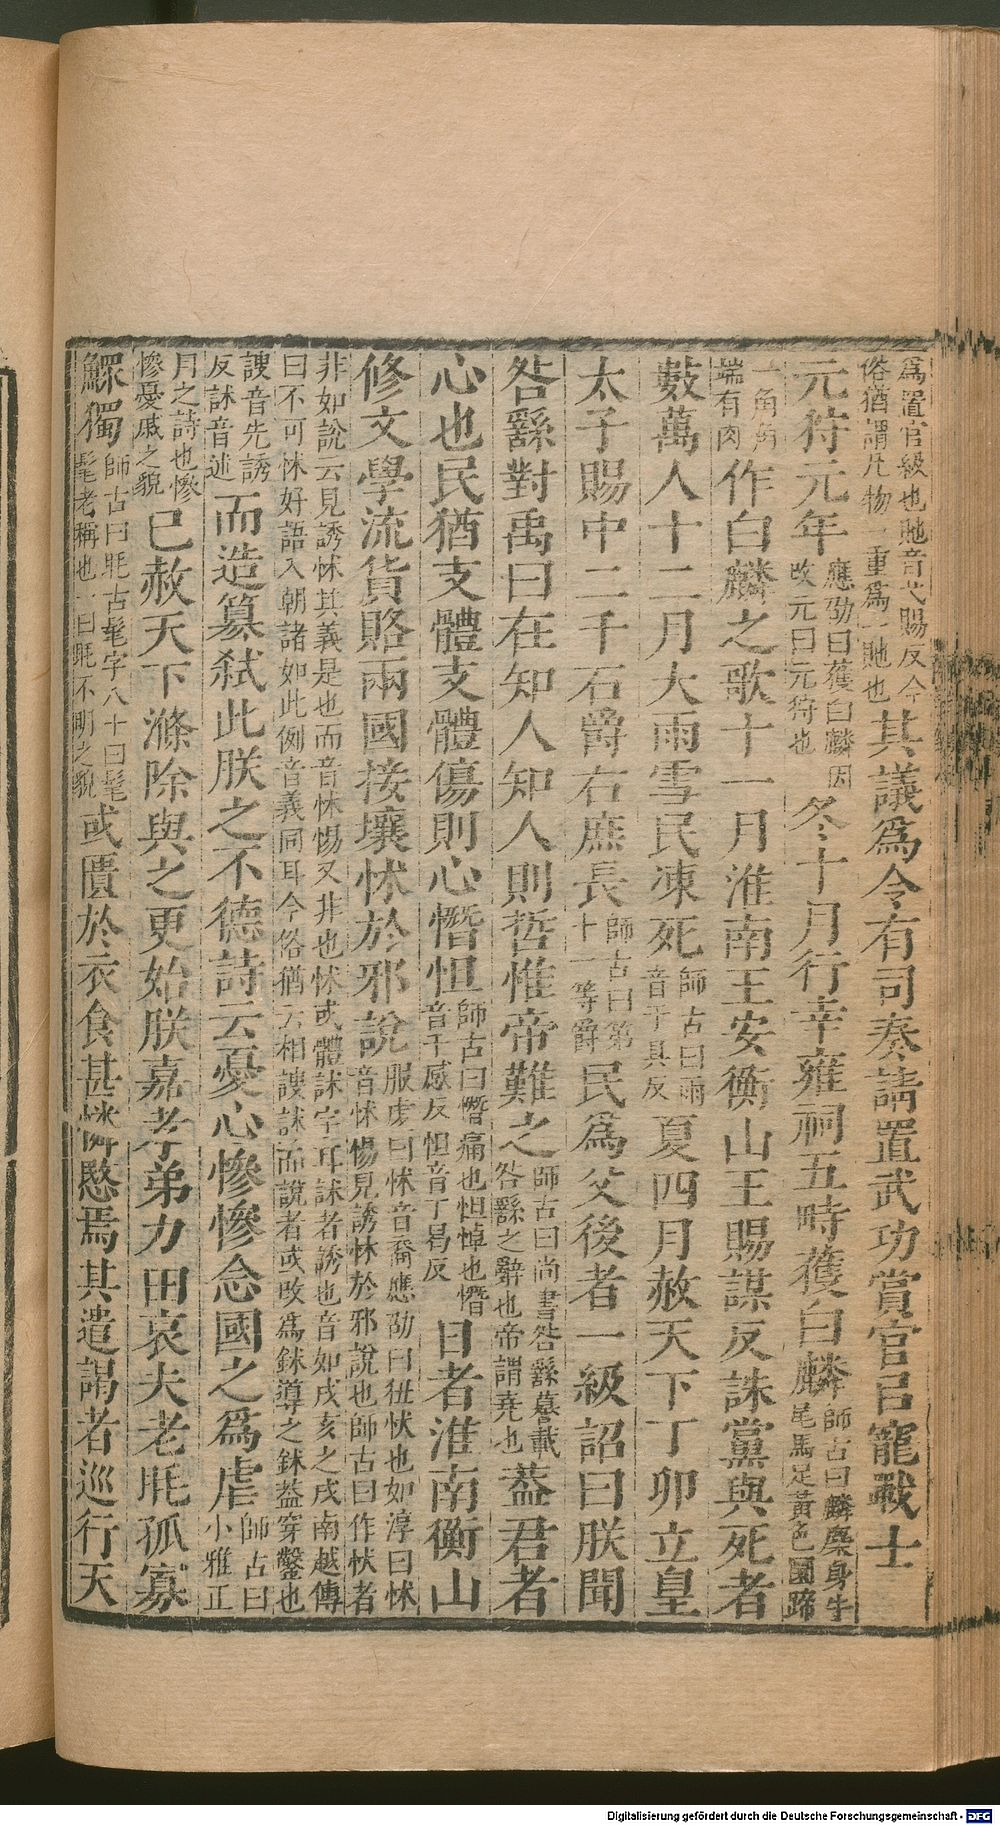 爲置官級也貤音弋賜反今俗猶謂凡物一重爲一貤也其議爲令有司奏請置武功賞官吕寵戰士
元狩元年應劭曰獲白麟因改元曰元狩也冬十月行幸雍祠五畤獲白麟師古曰麟麋身牛尾馬足黃色圜蹄
一角角端有肉作白麟之歌十一月淮南王安衡山王賜謀反誅黨與死者
數萬人十二月大雨雪民凍死師古曰雨音于具反夏四月赦天下丁卯立皇
太子賜中二千石爵右庶長師古曰第十一等爵民爲父後者一級詔曰朕聞
咎繇對禹曰在知人知人則哲惟帝難之師古曰尚書咎繇謩載咎繇之辭也帝謂堯也蓋君者
心也民猶支體支體傷則心憯怛師古曰憯痛也怛悼也憯音千感反怛音丁曷反日者淮南衡山
修文學流貨賂兩國接壤怵於邪說服虔曰怵音裔應劭曰狃怵也如淳曰怵音怵惕見誘怵於邪說也師古曰作怵者
非如說云見誘怵其義是也而音怵惕又非也怵或體訹字耳訹者誘也音如戌亥之戌南越傳曰不可怵好語入朝諸如此例音義同耳今俗猶云相謏訹而說者或改爲鉥導之鉥蓋穿鑿也
謏音先誘反訹音述而造篡弒此朕之不德詩云憂心慘慘念國之爲虐師古曰小雅正
月之詩也慘慘憂戚之貌已赦天下滌除與之更始朕嘉孝弟力田哀夫老眊孤寡
鰥獨師古曰眊古耄字八十曰耄耄老稱也一曰眊不明之貌或匱於衣食甚憐愍焉其遣謁者巡行天
Digitalisierung gefördert durch die Deutsche Forschungsgemeinschaft - DFG